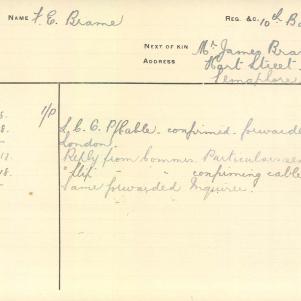 NAME F. E. Brame
REG. &C. 10th Ba
NEXT OF KIN Mr James Bra
ADDRESS Hart Street
Semaphore
1/P
S. C. G. P/Cable confirmed forwarde
London
8.
Reply from Commr. Particulars sen
17.
"flix - " - confirming cable
18.
Same forwarded Inquirer.